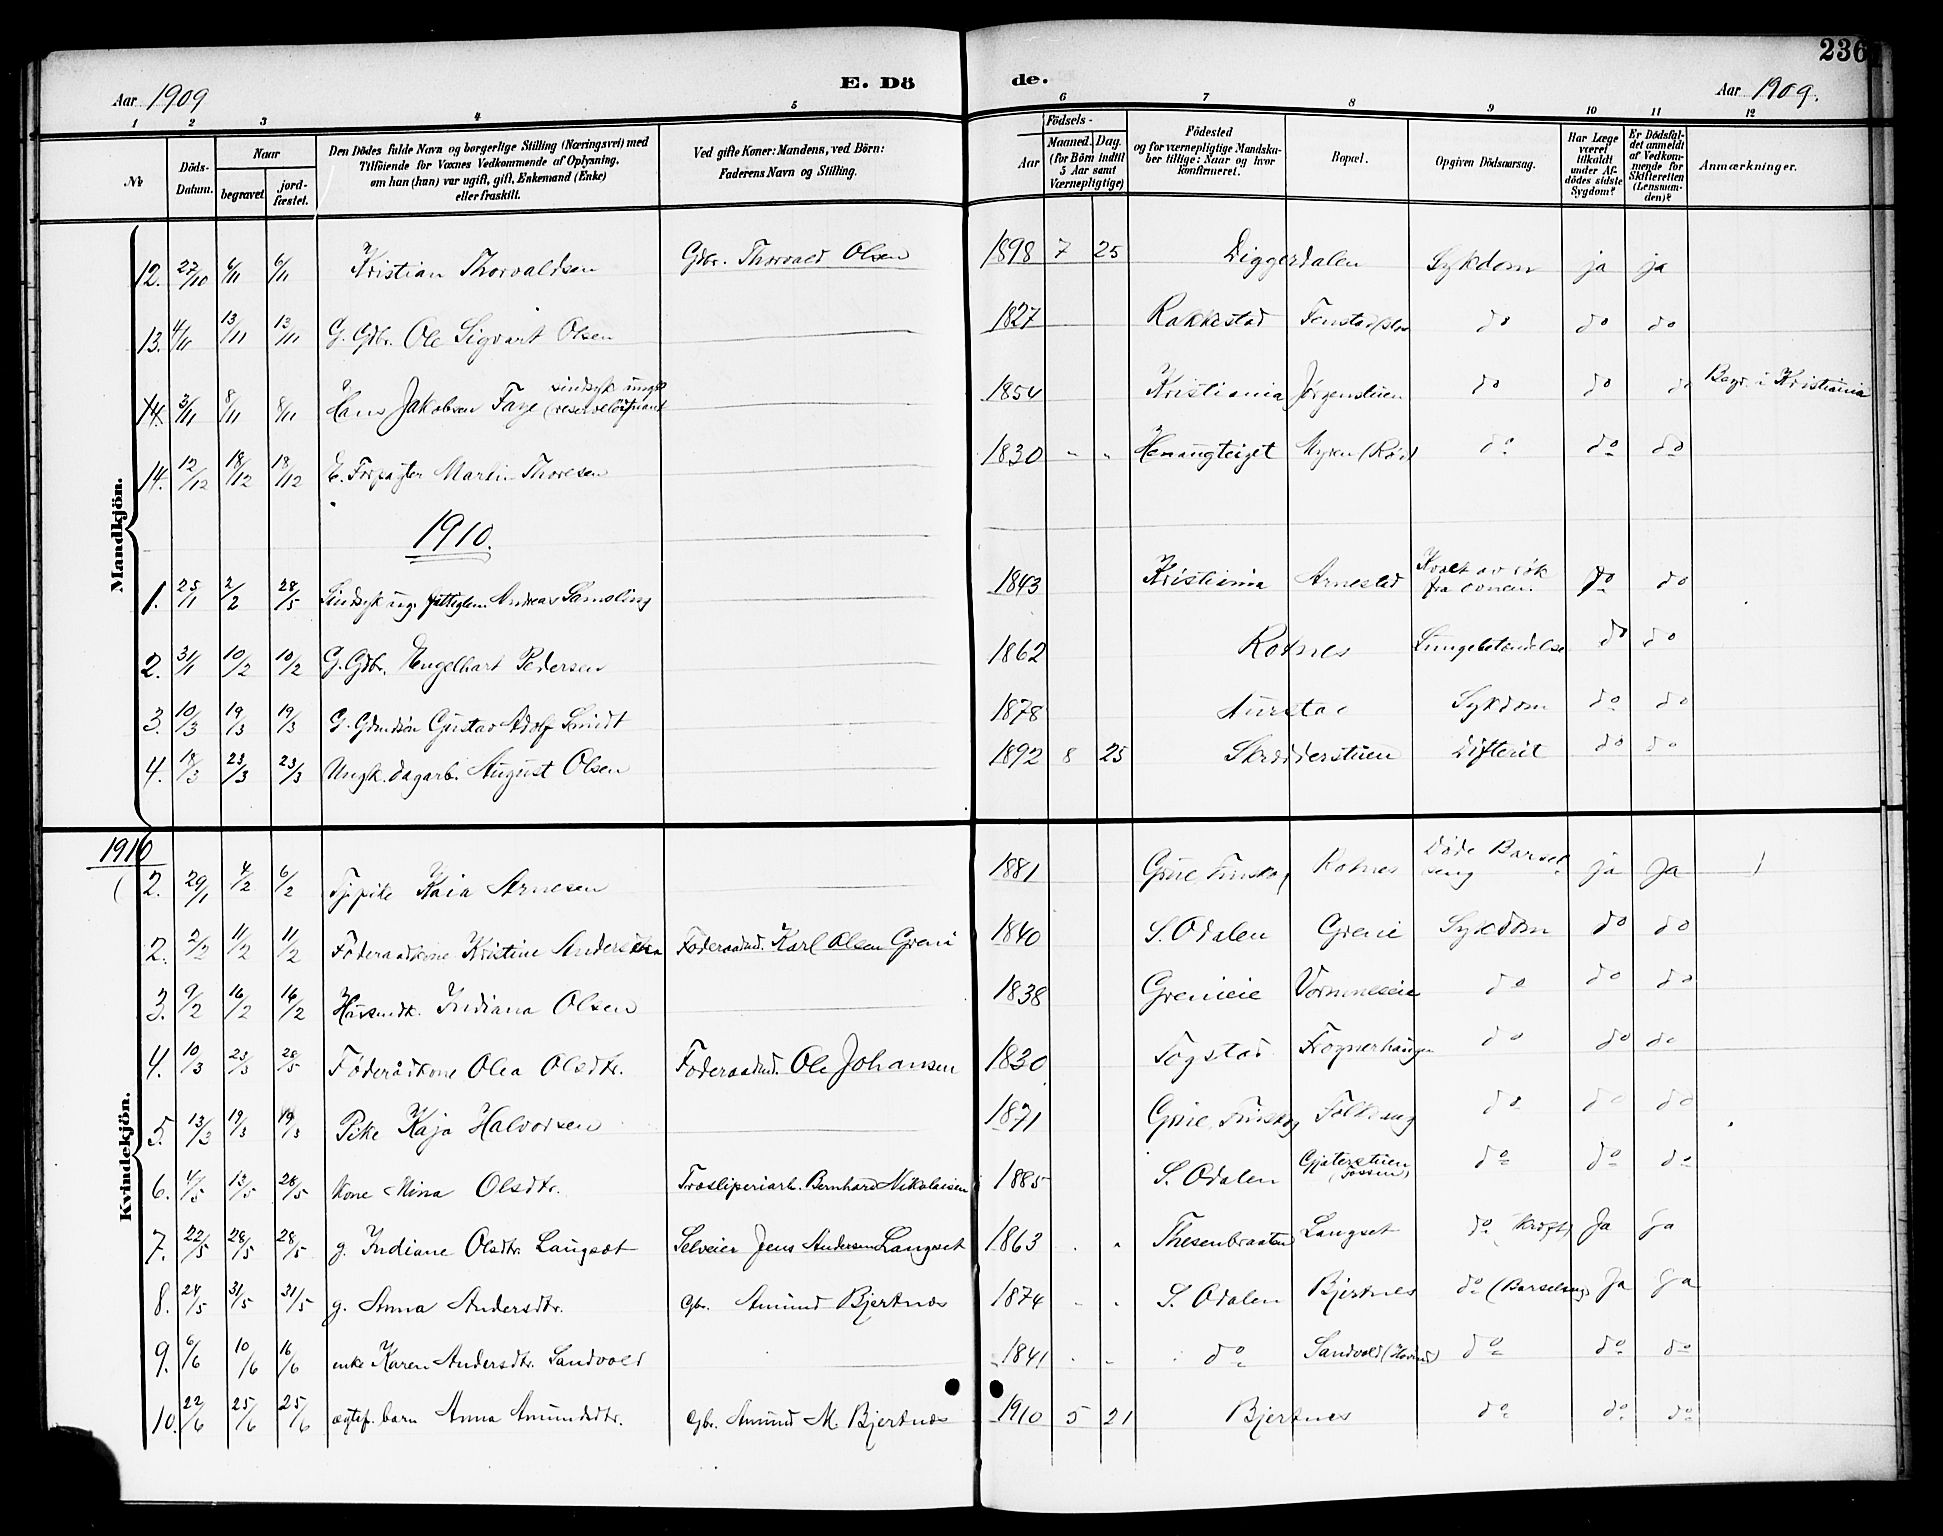 236
Aar 1909 E. Dö de. Aar 1909.
1 2 3 4 5 6 7 8 9 10 11 12
No Döds-Datum. Naar begravet jordfæstet. Den Dödes fulde Navn og borgerlige Stilling (Næringsvei) med Tilföiende for Voxnes Vedkommende af Oplysning, om han (hun) var ugift, gift, Enkemand (Enke) eller fraskilt. Ved gifte Koner: Mandens, ved Börn: Faderens Navn og Stilling. Aar Födsels- Maaned. Dag. (for Börn indtil 5 Aar samt Værnepligtige) Födested og for værnepligtige Mandskaber tillige: Naar og hvor konfirmeret. Bopæl. Opgiven Dödsaarsag. Har Læge været tilkaldt under Afdödes sidste Sygdom? Er Dödsfaldet anmeldt af Vedkommende for Skifteretten (Lensmanden)? Anmærkninger.
Mandkjön.
12. 27/10 6/11 6/11 Kristian Thorvaldsen Gdbr. Thorvald Olsen 1898 7 25 Diggerdalen Sykdom ja ja
13. 4/11 13/11 13/11 G. Gdbr. Ole Sigvart Olsen 1827 Rakkestad do do do
14. 3/11 8/11 8/11 Hans Jakobsen Faye (sindsyk ungk. reserveløitnant 1854 Kristiania Jørgenstuen do do do Begr. i Kristiania
14. 12/12 18/12 18/12 E. Forpagter Martin Thoresen 1830 " " Henaugteiget Myren do do do
1910.
1. 25/1 2/2 28/5 Sindsyk ug. Andreas Samsling 1843 Kristiania Arnestad Kvalt av røk fra ovnen. do do
2. 31/1 10/2 10/2 G. Gdbr. Engelhart Pedersen 1862 Rotnes Lungebetændelse do do
3. 10/3 19/3 19/3 G. Gustav Adolf Smidt 1878 Aurstad Sykdom do do
4. 18/3 23/3 23/3 Ungk. dagarb. August Olsen 1892 8 25 Skrædderstuen Difterit do do
1910
Kvindekjön.
2. 29/1 4/2 6/2 Tjpike Kaia Arnesen 1881 Grue Finskog Rotnes Døde Barselseng ja Ja
2. 2/2 11/2 11/2 Føderaadkone Kristine Andersdtr Føderaadmd. Karl Olsen Greni 1840 S. Odalen Greni Sykdom do do
3. 9/2 16/2 16/2 Husmdk. Indiana Olsen 1838 Grenieie do do do
4. 10/3 23/3 28/5 Føderådkone Olea Olsdtr. Føderaadmd. Ole Johansen 1830 Togstad Frognerhaugen do do do
5. 13/3 19/3 19/3 Pike Kaja Halvorsen 1871 Grue, Finskog Folkvang do do do
6. 4/5 13/5 28/5 Kone Mina Olsdtr. Træsliperiarb. Bernhard Nikolaisen 1885 S. Odalen Gjeterstuen (Fossum) do do do
7. 22/5 28/5 28/5 g. Indiane Olsdtr. Langset Selveier Jens Andersen Langset 1863 " " Thesenbraaten Langset do (Kræft) Ja Ja
8. 24/5 31/5 31/5 g. Anna Andersdtr. Gbr. Amund Bjertnæs 1874 " " S. Odalen Bjertnes do (Barselseng) Ja Ja
9. 6/6 10/6 16/6 enke Karen Andersdtr. Sandvold 1841 " " do Sandvold do do do
10. 22/6 25/6 25/6 ægtef. barn Anna Amundsdtr. Gbr. Amund M. Bjertnæs 1910 5 21 Bjertnes do do do